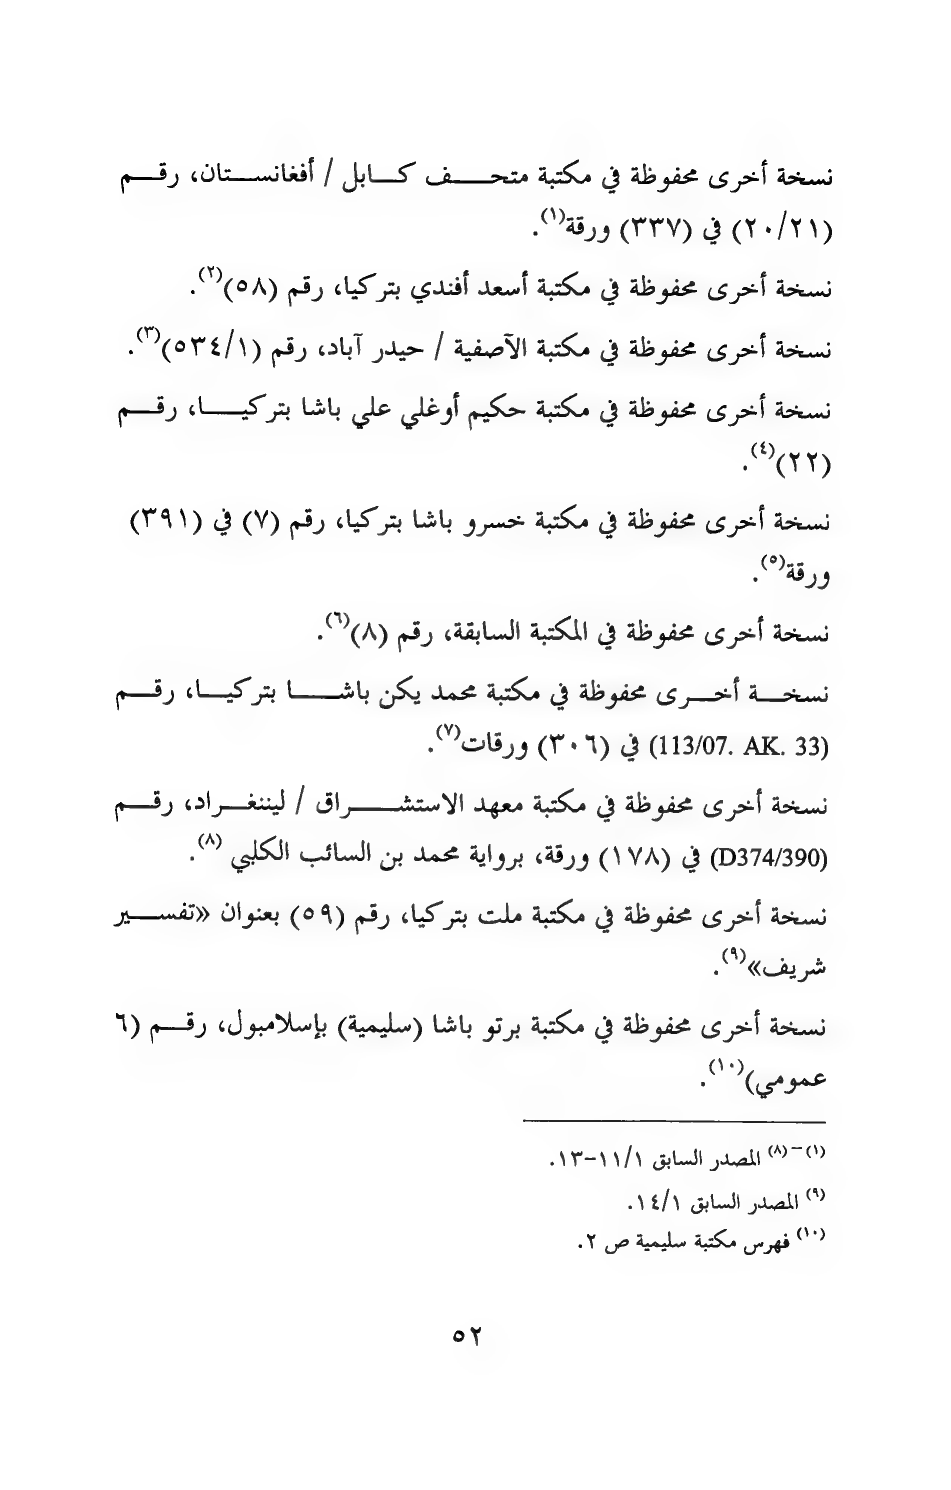 نسخة أخرى محفوظة في مكتبة متحف كابل / أفغانستان، رقم
(٢٠/٢١) في (٣٣٧) ورقة(١).
نسخة أخرى محفوظة في مكتبة أسعد أفندي بتركيا، رقم (٥٨)(٢).
نسخة أخرى محفوظة في مكتبة الآصفية / حيدر آباد، رقم (٥٣٤/١)(٣).
نسخة أخرى محفوظة في مكتبة حكيم أوغلي علي باشا بتركيا، رقم
(٢٢)(٤).
نسخة أخرى محفوظة في مكتبة خسرو باشا بتركيا، رقم (٧) في (٣٩١)
ورقة(٥).
نسخة أخرى محفوظة في المكتبة السابقة، رقم (٨)(٦).
نسخة أخرى محفوظة في مكتبة محمد يكن باشا بتركيا، رقم
(113/07. AK. 33) في (٣٠٦) ورقات(٧).
نسخة أخرى محفوظة في مكتبة معهد الاستشراق / ليننغراد، رقم
(D374/390) في (١٧٨) ورقة، برواية محمد بن السائب الكلبي (٨).
نسخة أخرى محفوظة في مكتبة ملت بتركيا، رقم (٥٩) بعنوان «تفسير
شريف»(٩).
نسخة أخرى محفوظة في مكتبة برتو باشا (سليمية) بإسلامبول، رقم (٦
عمومي)(١٠).
(١)–(٨) المصدر السابق ١١/١–١٣.
(٩) المصدر السابق ١٤/١.
(١٠) فهرس مكتبة سليمية ص ٢.
٥٢